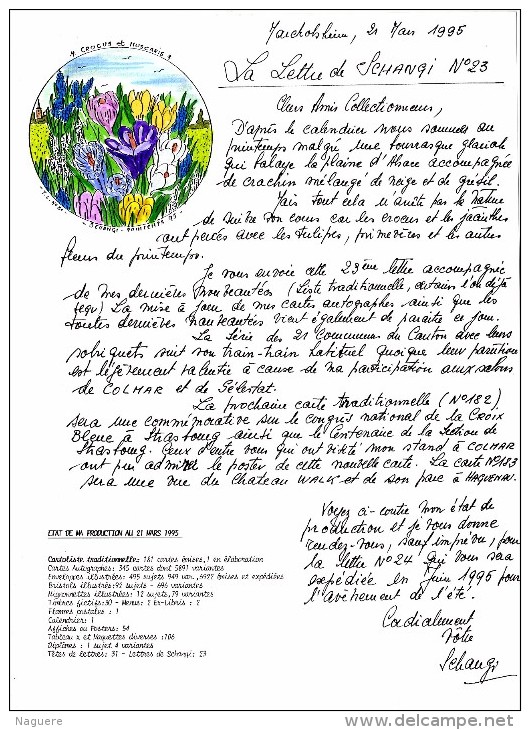 Marckolsheim, 21 Mars 1995
La Lettre de SCHANGI N°23
Chers Amis Collectionneurs,
D'après le calendrier nous sommes au
printemps malgré une bourrasque glaciale
qui balaye la Plaine d'Alsace accompagnée
de crachin mélangé de neige et de grésil.
Mais tout cela n'arrête pas la nature
de suivre son cours car les crocus et les jacinthes
ont percés avec les tulipes, primevères et les autres
fleurs du printemps.
Je vous envoie cette 23ème lettre accompagnée
de mes dernières nouveautés (Liste traditionnelle, certains l'ont déjà
reçu) La mise à jour de mes cartes autographes ainsi que les
toutes dernières nouveautés vient également de paraître ce jour.
La Série des 21 Communes du Canton avec leurs
sobriquets suit son train-train habituel quoique leur parution
est légèrement ralentie à cause de ma participation aux salons
de COLMAR et de Sélestat.
La prochaine carte traditionnelle (N°182)
sera une commémorative sur le congrès national de la CROIX
Bleue à Strasbourg ainsi que le Centenaire de la Section de
Strasbourg. Ceux d'entre vous qui ont visité mon stand à COLMAR
ont pu admirer le poster de cette nouvelle carte. La carte N°183
sera une vue du Chateau WALK et de son parc à HAGUENAU.
Voyez ci-contre mon état de
production et je vous donne
rendez-vous, sauf imprévu, pour
la lettre N°24 qui vous sera
expédiée en Juin 1995 pour
l'avènement de l'été.
Cordialement
Vôtre
Schangi
ETAT DE MA PRODUCTION AU 21 MARS 1995
Cartoliste traditionnelle: 181 cartes émises,1 en élaboration
Cartes Autographes: 345 cartes dont 5891 variantes
Enveloppes illustrées: 495 sujets 949 var.,6927 émises et expédiées
Bristols illustrés:92 sujets - 695 variantes
Mignonnettes illustrées: 12 sujets,79 variantes
Timbres fictifs:30 - Menus: 2 Ex-Libris : 2
Flammes postales : 1
Calendrier: 1
Affiches ou Posters: 54
Tableau x et Maquettes diverses :106
Diplômes : 1 sujet 4 variantes
Têtes de lettres: 31 - Lettres de Schangi: 23
Naguere
delcampe.net